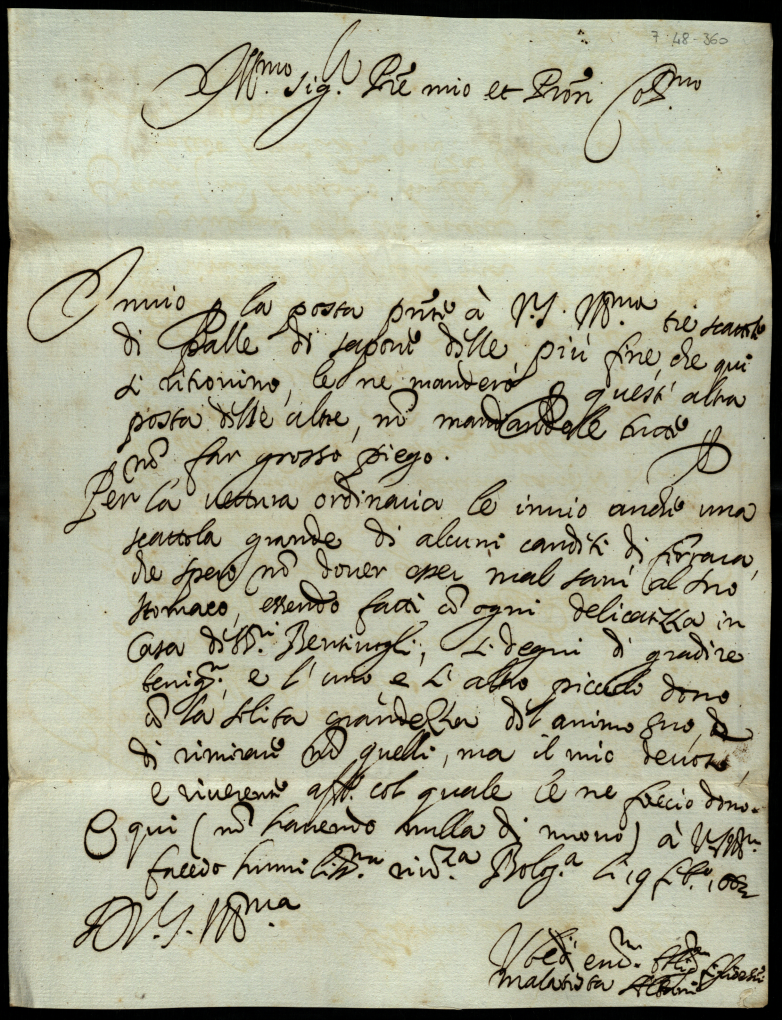 7-48-360
Ill.mo Sig.r P.re mio et P.ron Co.mo
Inuio p la posta pnte à V.S. Ill.ma tre scattole
di Palle di sapone delle più fine, che qui
si ritrouino, le ne manderò p quest' altra
posta delle altre, nō mandandole tutte p
nō far grosso piego.
Per la vettura ordinaria le inuio anche una
scattola grande di alcuni canditi di Ferrara,
che spero nō douer esser mal sani al suo
stomaco, essendo fatti cō ogni delicatezza in
Casa de SS.ri Bentiuogli, si degni di gradire
benig.te, e l'uno e l'altro piccolo dono
cō la solita grandezza del animo suo,
di rimirare nō quelli, ma il mio deuoto,
e riuerente aff.o col quale le ne faccio dono.
E qui (nō hauendo nulla di nuouo) à V.S. Ill.ma
faccio humiliss.ma riu.za Bolog.a li 19 feb.o 1662
D V.S. Ill.ma
Vbedien.mo
Malatesta Albani